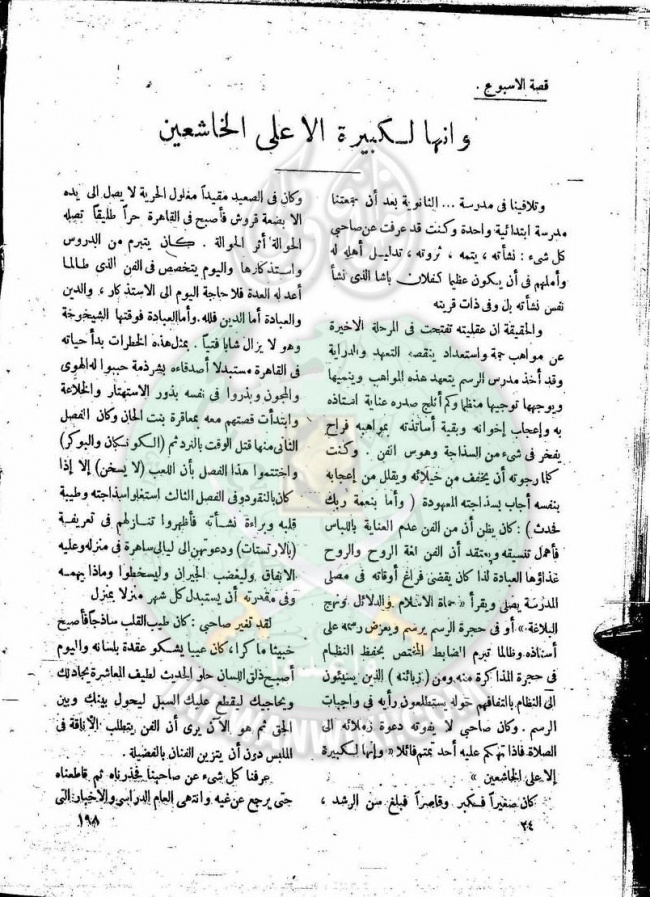 قصة الاسبوع .
وانها لكبيرة الا على الخاشعين
وتلاقينا فى مدرسة ... الثانوية بعد أن جمعتنا
مدرسة ابتدائية واحدة وكنت قد عرفت عن صاحبي
كل شىء : نشأته ، يتمه ، ثروته ، تدليل أهله له
وأملهم فى أن يكون عظيما كفلان باشا الذى نشأ
نفس نشأته بل وفى ذات قريته
والحقيقة ان عقليته تفتحت فى المرحلة الاخيرة
عن مواهب جمة واستعداد ينقصه التعهد والدراية
وقد أخذ مدرس الرسم يتعهد هذه المواهب وينميها
ويوجهها توجيها منظما وكم أثلج صدره عناية استاذه
به وإعجاب إخوانه وبقية أساتذته بمواهبه فراح
يفخر فى شىء من السذاجة وهوس الفن . وكنت
كلما رجوته أن يخفف من خيلائه ويقلل من إعجابه
بنفسه أجاب بسذاجته المعهودة ( وأما بنعمة ربك
فحدث ) : كان يظن أن من الفن عدم العناية باللباس
فأهمل تنسيقه ويعتقد أن الفن لغة الروح والروح
غذاؤها العبادة لذا كان يقضى فراغ أوقاته فى مصلى
المدرسة يصلى ويقرأ « حماة الاسلام والدلائل ونهج
البلاغة » أو فى حجرة الرسم يرسم ويعرض رسمه على
أستاذه وطالما تبرم الضابط المختص بحفظ النظام
فى حجرة المذاكرة منه ومن ( زبائنه ) الذين يسيئون
الى النظام بالتفافهم حوله يستطلعون رأيه فى واجبات
الرسم . وكان صاحبي لا يفوته دعوة زملائه الى
الصلاة فاذا تهكم عليه أحد تمتم قائلا « وإنها لكبيرة
إلا على الخاشعين »
كان صغيراً فكبر وقاصراً فبلغ سن الرشد ،
٢٤
وكان فى الصعيد مقيداً مغلول الحرية لا يصل الى يده
الا بضعة قروش فأصبح فى القاهرة حراً طليقاً تصله
الحوالة أثر الحوالة . كان يتبرم من الدروس
واستذكارها واليوم يتخصص فى الفن الذى طالما
أعد له العدة فلا حاجة اليوم الى الاستذكار ، والدين
والعبادة أما الدين فلله وأما العبادة فوقتها الشيخوخة
وهو لا يزال شابا فتيا . بمثل هذه الخطرات بدأ حياته
فى القاهرة مستبدلا أصدقاءه بشرذمة حببوا له الهوى
والمجون وبذروا فى نفسه بذور الاستهتار والخلاعة
وابتدأت قصتهم معه بمعاقرة بنت الحان وكان الفصل
الثانى منها قتل الوقت بالنرد ثم ( الكونكان والبوكر )
واختتموا هذا الفصل بأن اللعب ( لا يسخن ) إلا إذا
كان بالنقود وفى الفصل الثالث استغلوا سذاجته وطيبة
قلبه وبراءة نشأته فأظهروا تنازلهم فى تعريفه
( بالارتستات ) ودعوتهن الى ليالى ساهرة فى منزله وعليه
الانفاق وليغضب الجيران وليسخطوا وماذا يهمه
وفى مقدرته أن يستبدل كل شهر منزلا بمنزل
لقد تغير صاحبي : كان طيب القلب ساذجاً فأصبح
خبيثا ماكرا ، كان عييا يشكو عقدة بلسانه واليوم
أصبح ذلق اللسان حلو الحديث لطيف المعاشرة يجادلك
ويحاجيك ليقطع عليك السبل ليحول بينك وبين
الحق ثم هو الآن يرى أن الفن يتطلب الاناقة فى
الملبس دون أن يتزين الفنان بالفضيلة .
عرفنا كل شىء عن صاحبنا فحذرناه ثم قاطعناه
حتى يرجع عن غيه وانتهى العام الدراسى والاخبار التى
١٩٨